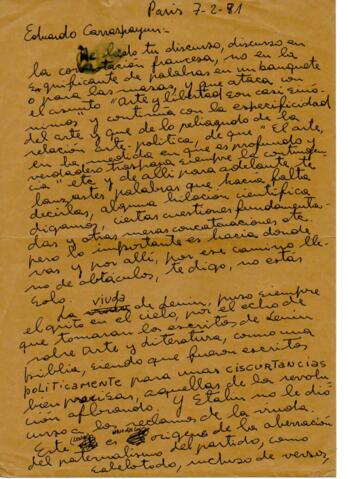 Paris 7-2-81
Eduardo Carrasquins:-
He leido tu discurso, discurso en
la connotación francesa, no en la
significante de palabras en un banquete
o para las masas, y que ataca con
el asunto "Arte y libertad son casi sinó-
nimos" y continua con la especificidad
del arte y que de lo peliagudo de la
relación arte-política, de que "El arte,
en la medida en que es profundo y
verdadero traspasa siempre la contingen-
cia" etc. y de allí para adelante te
lanzastes palabras que hacía falta
decirlas, alguna hilación científica
digamos, ciertas cuestiones fundamenta-
das y otras meras concatenaciones etc.
pero lo importante es hacia donde
vas y por allí, por ese camino lle-
no de obstáculos, te digo, no estás
solo.
La viuda de Lenin, puso siempre
el grito en el cielo, por el echo de
que tomaran los escritos de Lenin
sobre Arte y Literatura, como una
biblia, siendo que fueron escritos
políticamente para unas CISCURTANCIAS
bien precisas, aquellas de la revolu
ción aflorando. Y Stalin no le dió
curso a los reclamos de la viuda.
Este es origen de la aberración
del paternalismo del partido, como
sabelotodo, incluso de versos,